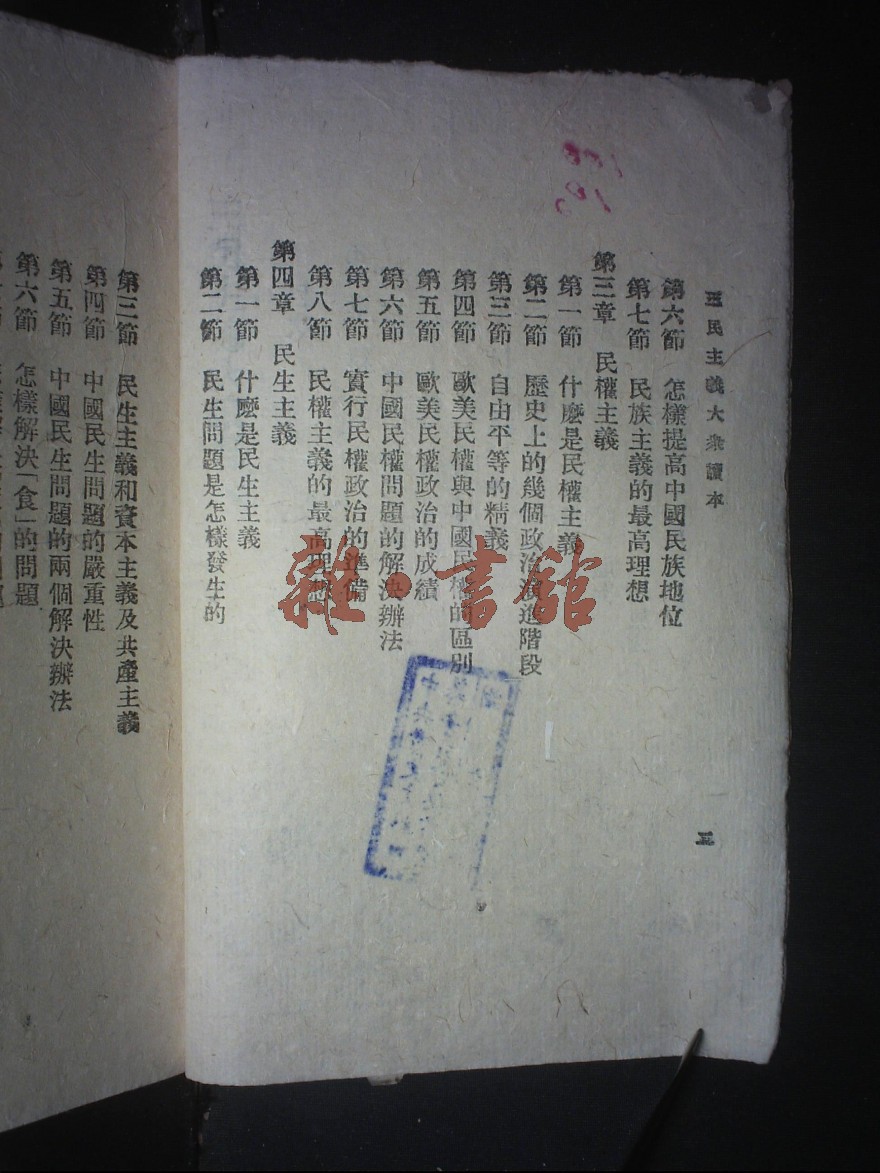 三民主義大衆讀本
第六節 怎樣提高中國民族地位
第七節 民族主義的最高理想
第三章 民權主義
第一節 什麽是民權主義
第二節 歷史上的幾個政治演進階段
第三節 自由平等的精義
第四節 歐美民權與中國民權的區別
第五節 歐美民權政治的成績
第六節 中國民權問題的解決辦法
第七節 實行民權政治的準備
第八節 民權主義的最高理想
第四章 民生主義
第一節 什麽是民生主義
第二節 民生問題是怎樣發生的
三
第三節 民生主義和資本主義及共產主義
第四節 中國民生問題的嚴重性
第五節 中國民生問題的兩個解決辦法
第六節 怎樣解決「食」的問題
雜·書館